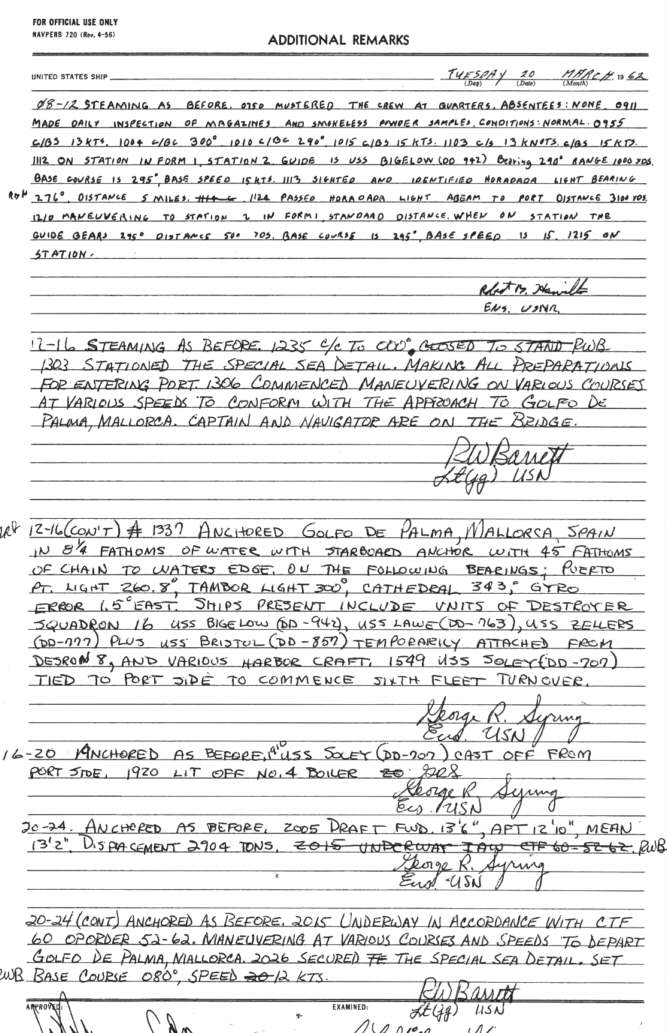 FOR OFFICIAL USE ONLY
NAVPERS 720 (Rev. 4-56)
ADDITIONAL REMARKS
UNITED STATES SHIP TUESDAY 20 MARCH 1962
(Day) (Date) (Month)
08-12 STEAMING AS BEFORE. 0750 MUSTERED THE CREW AT QUARTERS. ABSENTEES: NONE. 0911
MADE DAILY INSPECTION OF MAGAZINES AND SMOKELESS POWDER SAMPLES, CONDITIONS: NORMAL. 0955
C/BS 13 KTS. 1004 C/BC 300° 1010 C/BC 290°. 1015 C/BS 15 KTS. 1103 C/S 13 KNOTS. C/BS 15 KTS.
1112 ON STATION IN FORM 1, STATION 2. GUIDE IS USS BIGELOW (DD 942) Bearing 290° RANGE 1000 YDS.
BASE COURSE IS 295°, BASE SPEED 15 KTS. 1113 SIGHTED AND IDENTIFIED HORADADA LIGHT BEARING
276°, DISTANCE 5 MILES. 1124 PASSED HORADADA LIGHT ABEAM TO PORT DISTANCE 3100 YDS.
1210 MANEUVERING TO STATION 2 IN FORM 1, STANDARD DISTANCE. WHEN ON STATION THE
GUIDE BEARS 295° DISTANCE 500 YDS. BASE COURSE IS 295°, BASE SPEED IS 15. 1215 ON
STATION.
Robert B. Hamilton
ENS. USNR
12-16 STEAMING AS BEFORE. 1235 C/C TO 000°. CLOSED TO STAND RWB
1303 STATIONED THE SPECIAL SEA DETAIL. MAKING ALL PREPARATIONS
FOR ENTERING PORT. 1306 COMMENCED MANEUVERING ON VARIOUS COURSES
AT VARIOUS SPEEDS TO CONFORM WITH THE APPROACH TO GOLFO DE
PALMA, MALLORCA. CAPTAIN AND NAVIGATOR ARE ON THE BRIDGE.
RW Barrett
Lt(jg) USN
12-16 (CON'T) 1337 ANCHORED GOLFO DE PALMA, MALLORCA, SPAIN
IN 8¼ FATHOMS OF WATER WITH STARBOARD ANCHOR WITH 45 FATHOMS
OF CHAIN TO WATERS EDGE. ON THE FOLLOWING BEARINGS; PUERTO
PT. LIGHT 260.8°, TAMBOR LIGHT 300°, CATHEDRAL 343°, GYRO
ERROR 1.5° EAST. SHIPS PRESENT INCLUDE UNITS OF DESTROYER
SQUADRON 16 USS BIGELOW (DD-942), USS LAWE (DD-763), USS ZELLERS
(DD-777) PLUS USS BRISTOL (DD-857) TEMPORARILY ATTACHED FROM
DESRON 8, AND VARIOUS HARBOR CRAFT. 1549 USS SOLEY (DD-707)
TIED TO PORT SIDE TO COMMENCE SIXTH FLEET TURNOVER.
George R. Syring
Ens. USN
16-20 ANCHORED AS BEFORE, 1910 USS SOLEY (DD-707) CAST OFF FROM
PORT SIDE. 1920 LIT OFF NO. 4 BOILER 20 GRS
George R. Syring
Ens. USN
20-24. ANCHORED AS BEFORE. 2005 DRAFT FWD. 13'6", AFT 12'10", MEAN
13'2", DISPACEMENT 2904 TONS. 2015 UNDERWAY IAW CTF 60-52-62. RWB
George R. Syring
Ens. USN
20-24 (CONT) ANCHORED AS BEFORE. 2015 UNDERWAY IN ACCORDANCE WITH CTF
60 OPORDER 52-62. MANEUVERING AT VARIOUS COURSES AND SPEEDS TO DEPART
GOLFO DE PALMA, MALLORCA. 2026 SECURED THE SPECIAL SEA DETAIL. SET
RWB BASE COURSE 080°, SPEED 20 12 KTS.
RW Barrett
Lt(jg) USN
APPROVED: EXAMINED: